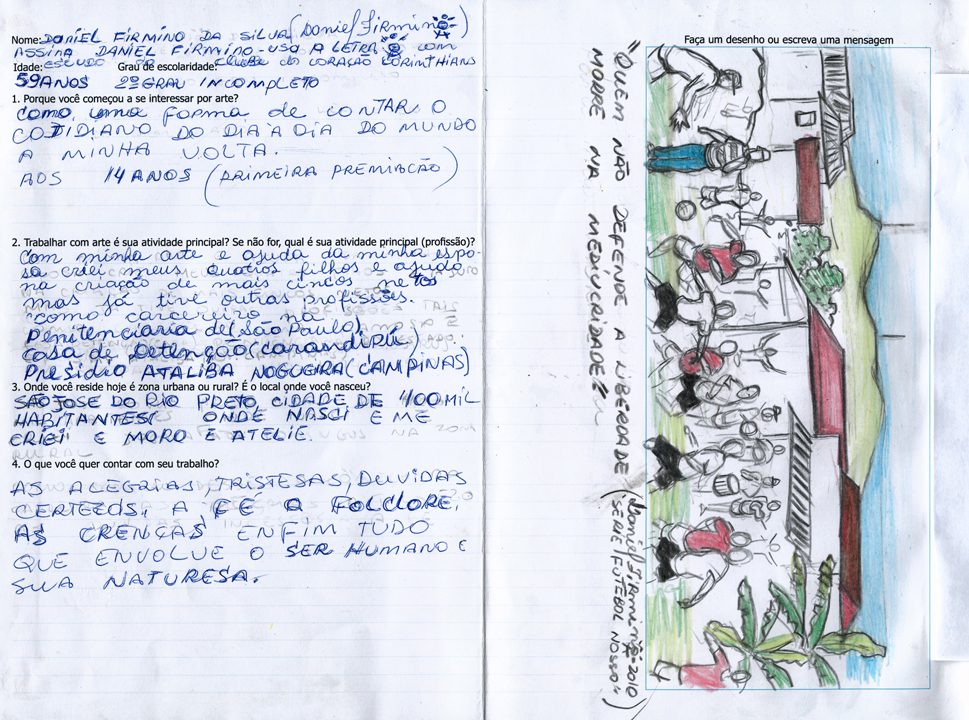 Nome: DANIEL FIRMINO DA SILVA (Daniel Firmino)
ASSINA DANIEL FIRMINO - USA A LETRA O com
Idade: escudo do clube do CORAÇÃO CORINTHIANS
Grau de escolaridade:
59 ANOS 2º GRAU INCOMPLETO
1. Porque você começou a se interessar por arte?
COMO, uma FORMA de CONTAR O
COTIDIANO DO DIA A DIA DO MUNDO
A MINHA VOLTA.
AOS 14 ANOS (PRIMEIRA PREMIAÇÃO)
2. Trabalhar com arte é sua atividade principal? Se não for, qual é sua atividade principal (profissão)?
Com minha arte e ajuda da minha espo-
sa criei meus quatros filhos e ajudo
na criação de mais cincos netos
mas já tive outras profissões.
"como carcereiro na
Penitenciaria de (São Paulo)
casa de Detenção (carandirú)
Presidio ATALIBA NOGUEIRA (CAMPINAS)
3. Onde você reside hoje é zona urbana ou rural? É o local onde você nasceu?
SÃO JOSE DO RIO PRETO, CIDADE DE 400 MIL
HABITANTES! ONDE NASCI E ME
CRIEI E MORO E ATELIE.
4. O que você quer contar com seu trabalho?
AS ALEGRIAS, TRISTESAS, DUVIDAS
CERTEZAS, A FÉ O FOLCLORE,
AS CRENÇAS ENFIM TUDO
QUE ENVOLVE O SER HUMANO E
SUA NATURESA.
Faça um desenho ou escreva uma mensagem
"QUEM NÃO DEFENDE A LIBERDADE
MORRE NA MEDIUCRIDADE"
(Daniel Firmino - 2010
(SERIE FUTEBOL NOSSO))